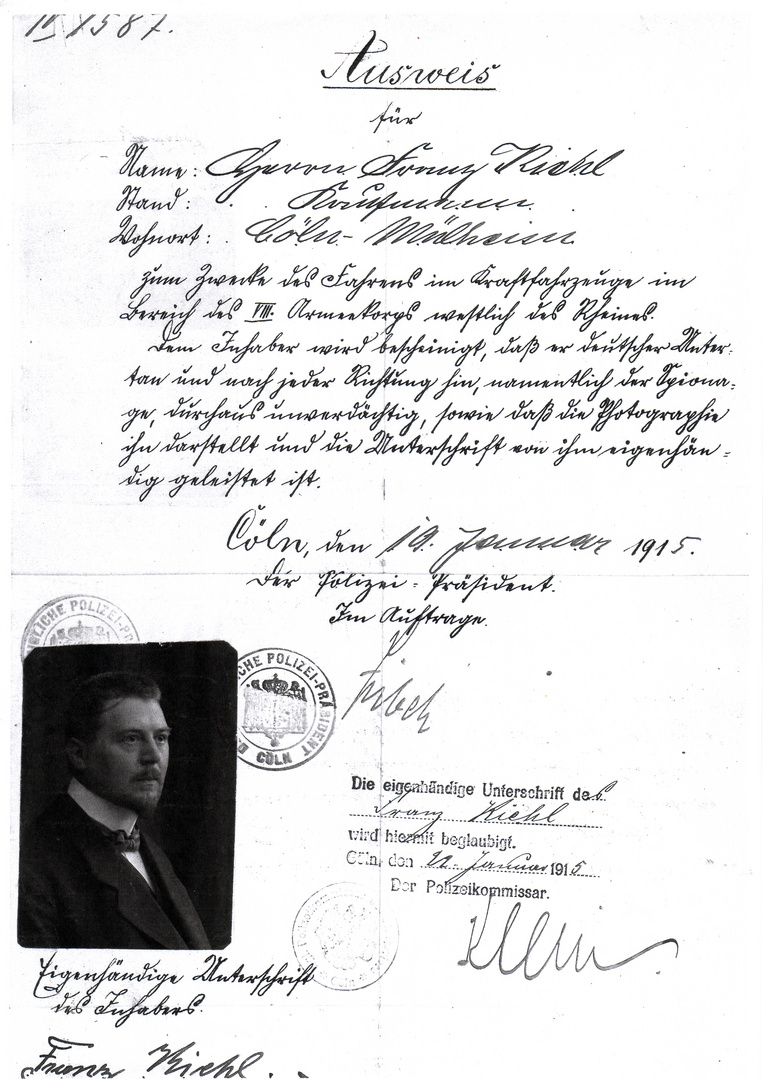 Ausweis
für
Name: Herrn Franz Riehl
Stand: Kaufmann
Wohnort: Cöln-Mülheim
zum Zwecke des Fahrens im Kraftfahrzeuge im
Bereich des VIII. Armeekorps westlich des Rheines.
Dem Inhaber wird bescheinigt, daß er deutscher Unter-
tan und nach jeder Richtung hin, namentlich der Spiona-
ge, durchaus unverdächtig, sowie daß die Photographie
ihn darstellt und die Unterschrift von ihm eigenhän-
dig geleistet ist.
Cöln, den 19. Januar 1915.
Der Polizei-Präsident.
Im Auftrage.
LICHE POLIZEI-PR
CHE POLIZEI-PRÄSIDENT
CÖLN
Die eigenhändige Unterschrift des
Franz Riehl
wird hiermit beglaubigt.
Cöln, den Januar 1915
Der Polizeikommissar.
Klein
Eigenhändige Unterschrift
des Inhabers.
Franz Riehl.